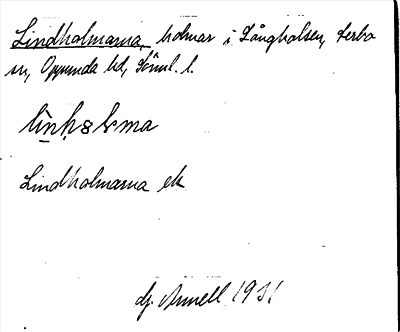 Lindholmarna, holmar i Långhalsen, Lerbo
sn, Oppunda hd, Söml. l.
Lindholmarna ek
Hj. Annell 1931